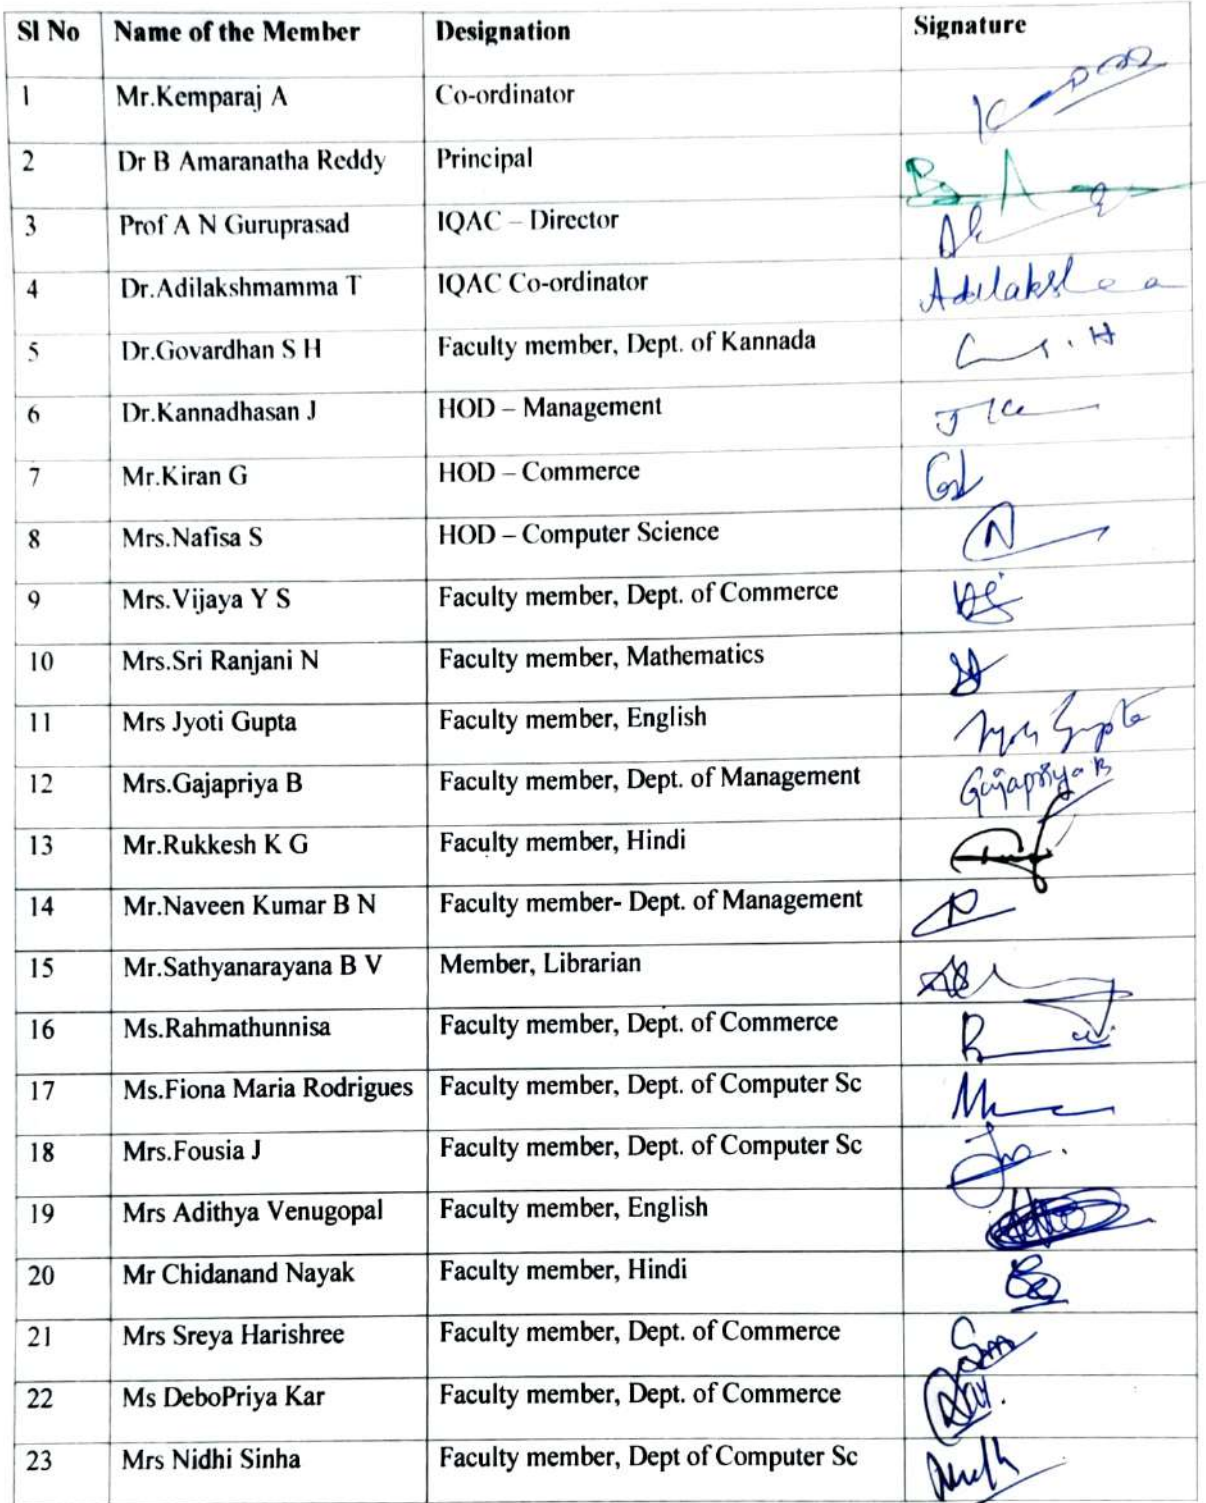 Sl No Name of the Member Designation Signature
1 Mr.Kemparaj A Co-ordinator
2 Dr B Amaranatha Reddy Principal
3 Prof A N Guruprasad IQAC – Director
4 Dr.Adilakshmamma T IQAC Co-ordinator
5 Dr.Govardhan S H Faculty member, Dept. of Kannada
6 Dr.Kannadhasan J HOD – Management
7 Mr.Kiran G HOD – Commerce
8 Mrs.Nafisa S HOD – Computer Science
9 Mrs.Vijaya Y S Faculty member, Dept. of Commerce
10 Mrs.Sri Ranjani N Faculty member, Mathematics
11 Mrs Jyoti Gupta Faculty member, English Jyoti Gupta
12 Mrs.Gajapriya B Faculty member, Dept. of Management Gajapriya B
13 Mr.Rukkesh K G Faculty member, Hindi
14 Mr.Naveen Kumar B N Faculty member- Dept. of Management
15 Mr.Sathyanarayana B V Member, Librarian
16 Ms.Rahmathunnisa Faculty member, Dept. of Commerce
17 Ms.Fiona Maria Rodrigues Faculty member, Dept. of Computer Sc
18 Mrs.Fousia J Faculty member, Dept. of Computer Sc
19 Mrs Adithya Venugopal Faculty member, English
20 Mr Chidanand Nayak Faculty member, Hindi
21 Mrs Sreya Harishree Faculty member, Dept. of Commerce
22 Ms DeboPriya Kar Faculty member, Dept. of Commerce
23 Mrs Nidhi Sinha Faculty member, Dept of Computer Sc